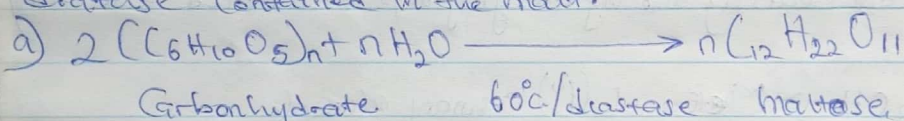 a) 2(C6H10O5)n + nH2O ⟶ nC12H22O11
Carbonhydrate 60°c/diastase maltose